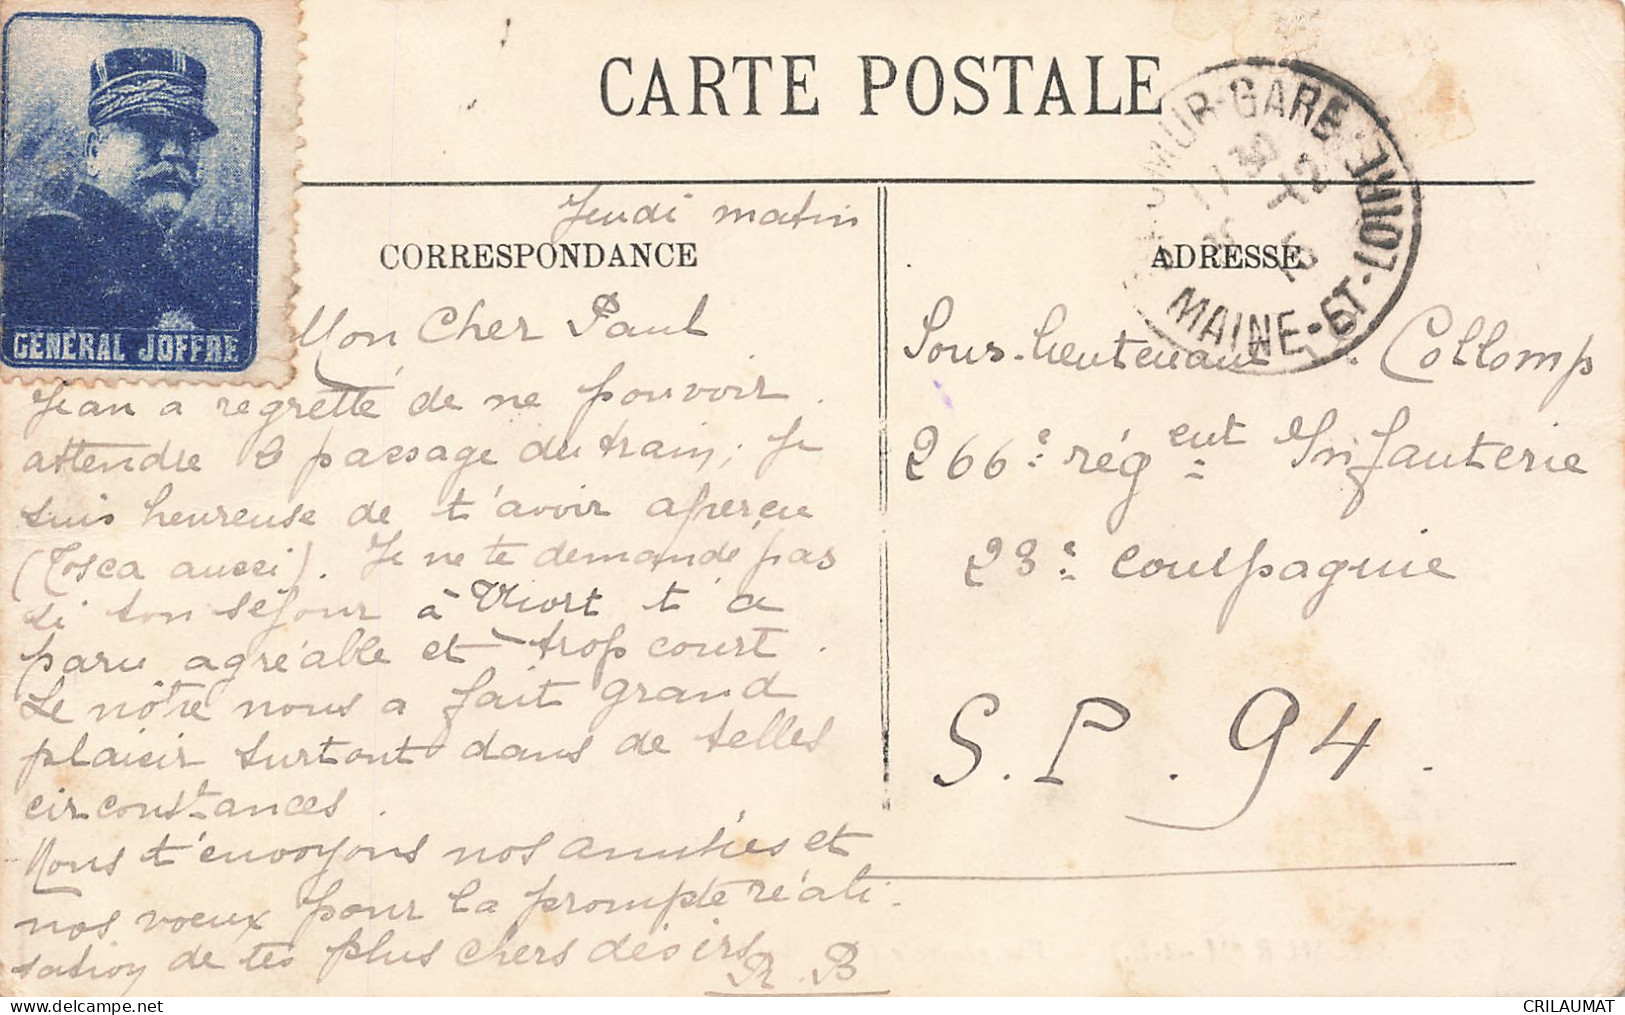 CARTE POSTALE
GÉNÉRAL JOFFRE
MUR-GARE
LOIRE
MAINE-ET-
Jeudi matin
CORRESPONDANCE
Mon Cher Paul
Jean a regretté de ne pouvoir
attendre le passage du train ; je
suis heureuse de t'avoir aperçu
(Tosca aussi). Je ne te demande pas
si ton séjour à Niort t'a
paru agréable et trop court.
Le nôtre nous a fait grand
plaisir surtout dans de telles
circonstances.
Nous t'envoyons nos amitiés et
nos voeux pour la prompte réali-
sation de tes plus chers désirs
R. B
ADRESSE
Sous-lieutenant Collomp
266e régiment Infanterie
23e Compagnie
S. P. 94.
CRILAUMAT